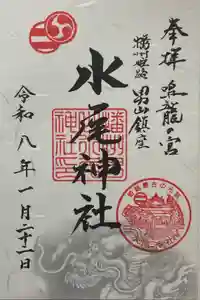 奉拝 鳴龍の宮
播州姫路 男山鎮座
水尾神社
令和八年一月二十二日